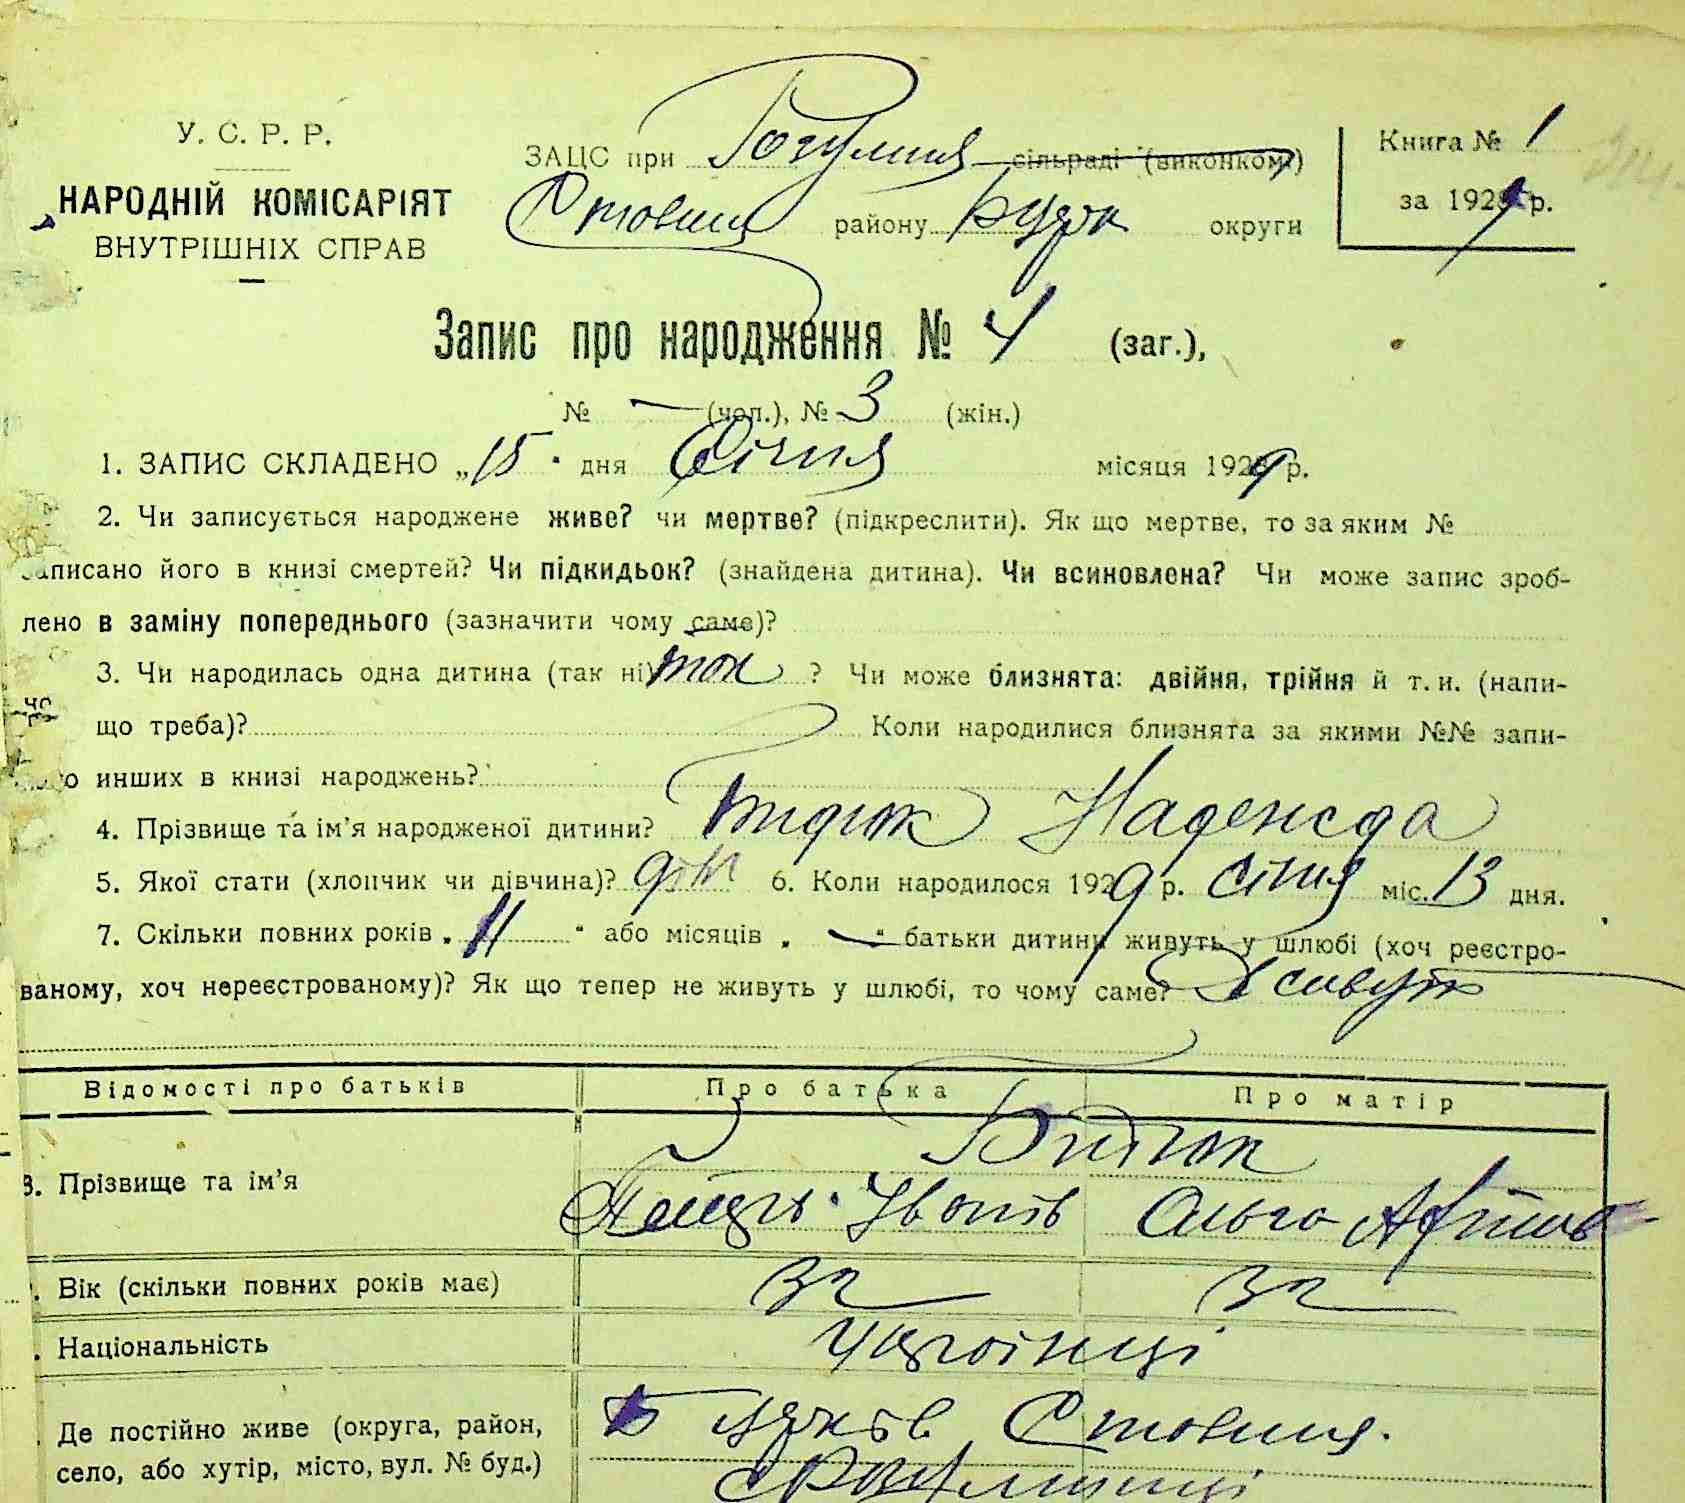 У. С. Р. Р.
НАРОДНІЙ КОМІСАРІЯТ
ВНУТРІШНІХ СПРАВ
ЗАЦС при сільраді (виконком)
району округи
Книга № 1
за 1929 р.
Запис про народження № 4 (заг.),
№ — (чол.), № 3 (жін.)
1. ЗАПИС СКЛАДЕНО „15" дня Січня місяця 1929 р.
2. Чи записується народжене живе? чи мертве? (підкреслити). Як що мертве, то за яким №
записано його в книзі смертей? Чи підкидьок? (знайдена дитина). Чи всиновлена? Чи може запис зроб-
лено в заміну попереднього (зазначити чому саме)?
3. Чи народилась одна дитина (так ні) так ? Чи може близнята: двійня, трійня й т. и. (напи-
що треба)? Коли народилися близнята за якими №№ запи-
о инших в книзі народжень?
4. Прізвище та ім'я народженої дитини? Надежда
5. Якої стати (хлопчик чи дівчина)? дівч 6. Коли народилося 1929 р. січня міс. 13 дня.
7. Скільки повних років „11" або місяців „—" батьки дитини живуть у шлюбі (хоч реєстро-
ваному, хоч нереєстрованому)? Як що тепер не живуть у шлюбі, то чому саме? Живуть
Відомості про батьків Про батька Про матір
8. Прізвище та ім'я
Ольга
Вік (скільки повних років має) 32 32
Національність Українці
Де постійно живе (округа, район,
село, або хутір, місто, вул. № буд.)